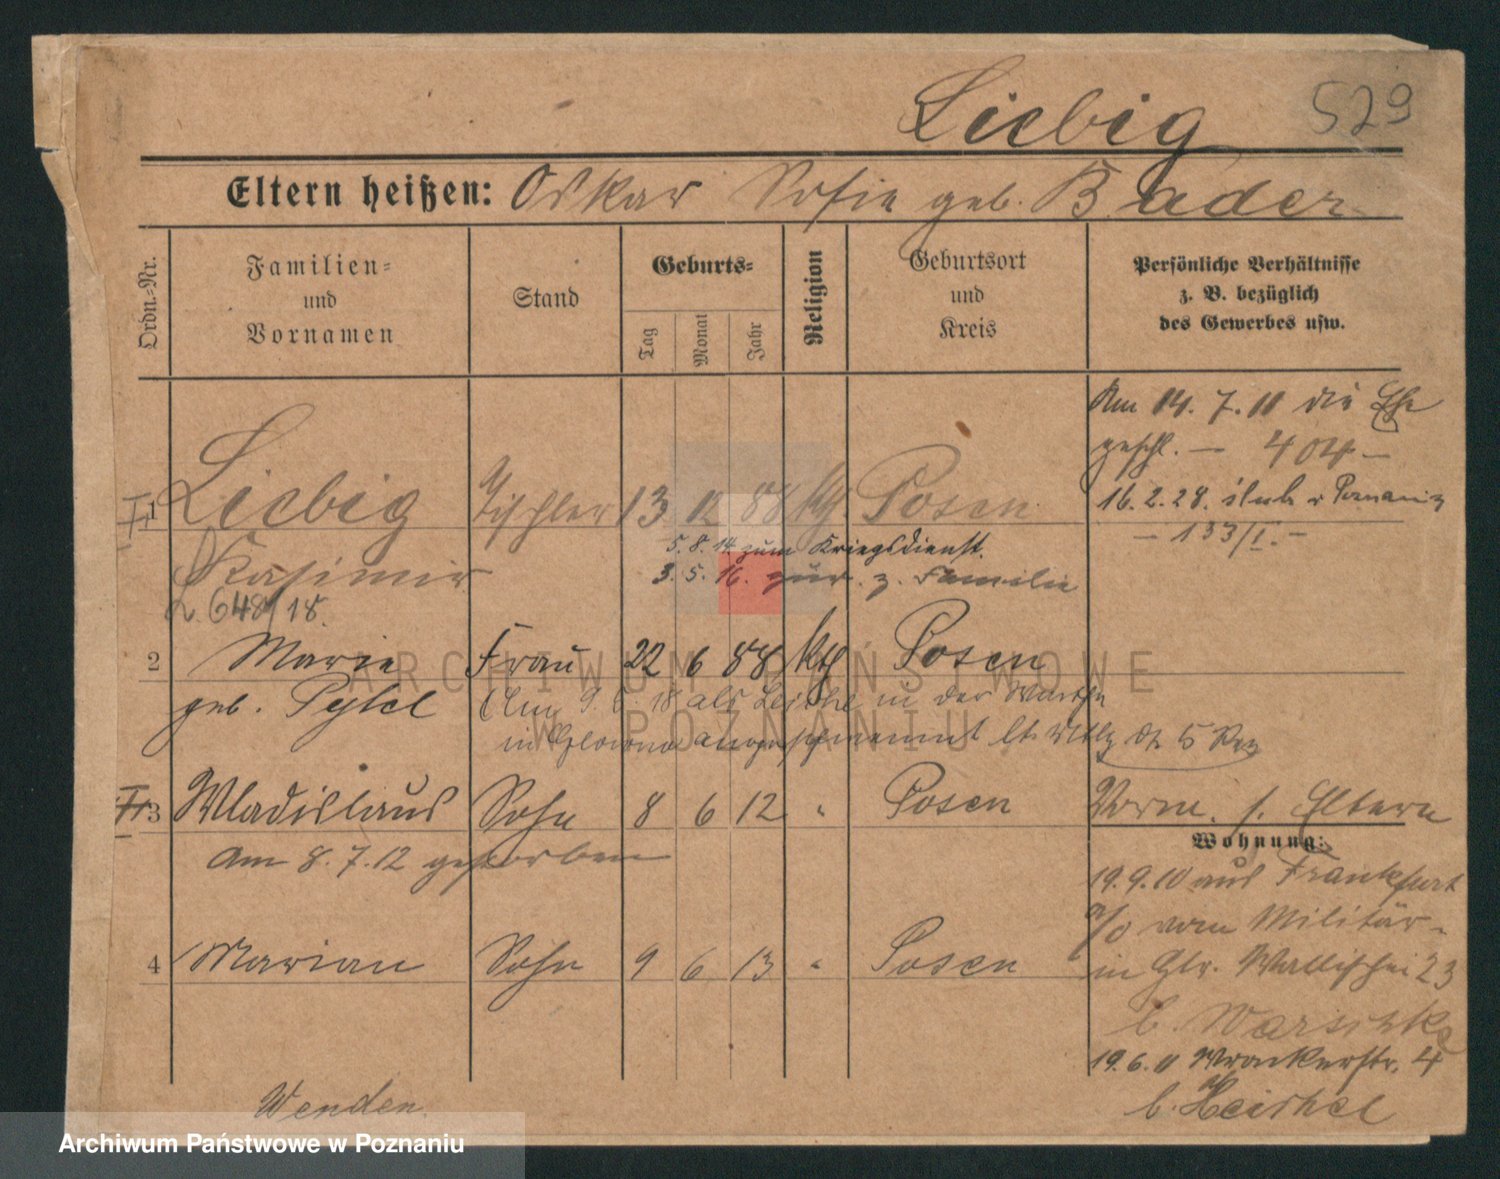 Liebig 529
Eltern heißen: Oskar Sofie geb. Bader
Ordn.-Nr.
Familien-
und
Vornamen
Stand
Geburts-
Tag
Monat
Jahr
Religion
Geburtsort
und
Kreis
Persönliche Verhältnisse
z. B. bezüglich
des Gewerbes usw.
Am 14. 7. 11 die Ehe
geschl. — 404 —
1 Liebig Tischler 13 12 88 kth Posen
16. 2. 28. ślub w Poznaniu
— 133/I. —
Kasimir
5. 8. 14 zum Kriegsdienst.
3. 5. 16. zur. z. Familie
L. 648/18.
2 Marie Frau 22 6 88 kth Posen
geb. Pytel
Am 9. 6. 18 als Leiche in der Warthe
in angeschwemmt lt. 5 Rev
3 Wladislaus Sohn 8 6 12 " Posen
Am 8. 7. 12 gestorben
Vorm. s. Eltern
Wohnung:
19. 9. 10 aus Frankfurt
a/O vom Militär
in Wallischei 23
b. Warschke
19. 6. 11 4
b. Heischel
4 Marian Sohn 9 6 13 " Posen
Wenden.
ARCHIWUM PAŃSTWOWE
W POZNANIU
Archiwum Państwowe w Poznaniu